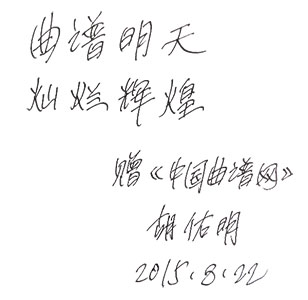 曲谱明天
灿烂辉煌
赠《中国曲谱网》
胡佑明
2015.8.22